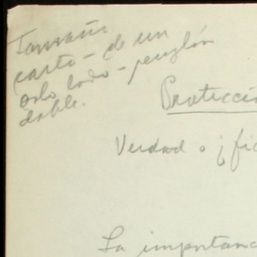 Tamaño
carta - de un
solo lado - renglón
doble.
Protecció
Verdad o ¡fic
La importanc